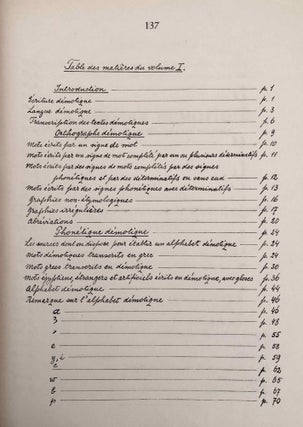 137
Table des matières du volume I.
Introduction p. 1
Ecriture démotique p. 1
Langue démotique p. 3
Transcription des textes démotiques p. 6
Orthographe démotique p. 9
Mots écrits par un signe de mot p. 10
Mots écrits par un signe de mot complété par un ou plusieurs déterminatifs p. 11
Mots écrits par des signes de mots complétés par des signes
phonétiques et par des déterminatifs ou sans eux p. 12
Mots écrits par des signes phonétiques avec déterminatifs p. 13
Graphies non-étymologiques p. 16
Graphies irrégulières p. 17
Abréviations p. 20
Phonétique démotique p. 24
Les sources dont on dispose pour établir un alphabet démotique p. 24
Mots démotiques transcrits en grec p. 24
Mots grecs transcrits en démotique p. 30
Mots égyptiens étrangers et artificiels écrits en démotique, avec gloses p. 36
Alphabet démotique p. 44
Remarque sur l'alphabet démotique p. 46
a p. 46
ꜣ p. 48
' p. 55
e p. 58
y, i p. 59
c p. 62
w p. 65
b p. 67
p p. 70